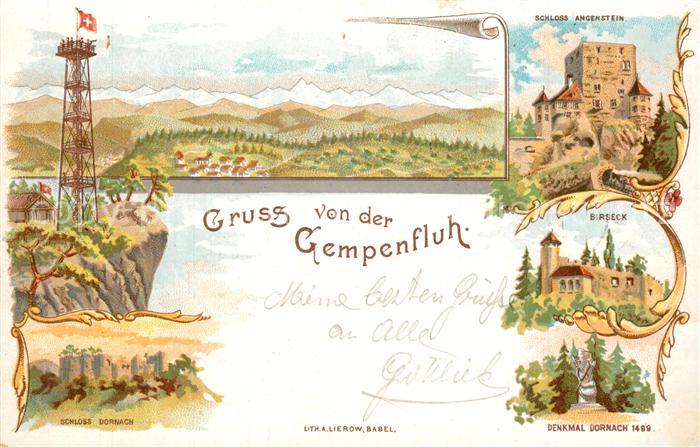 SCHLOSS ANGENSTEIN
Gruss von der
Gempenfluh.
BIRSECK
Meine besten Grüsse
an Alle
Gottlieb
SCHLOSS DORNACH
LITH. A. LIEROW, BASEL.
DENKMAL DORNACH 1499.